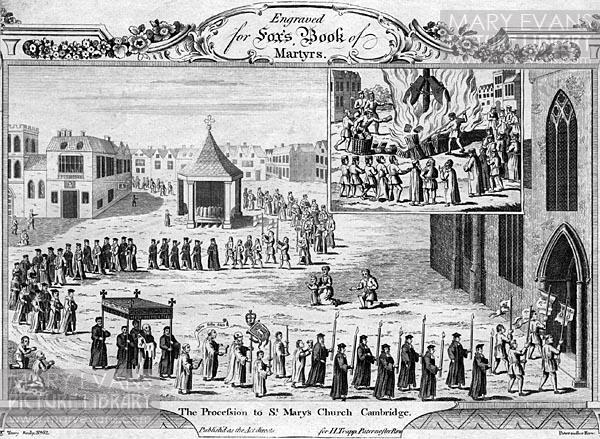 Engraved
for Fox's Book of
Martyrs.
MARY EVANS
PICTURE LIBRARY
MARY EVANS
PICTURE LIBRARY
The Procession to St. Mary's Church Cambridge.
Publish'd as the Act directs
for H. Trapp Paternoster Row